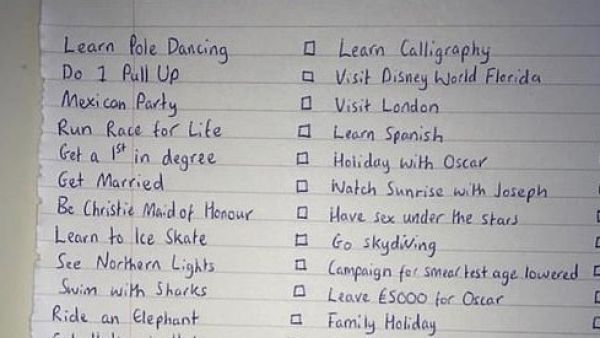 Learn Pole Dancing
Do 1 Pull Up
Mexican Party
Run Race for Life
Get a 1st in degree
Get Married
Be Christie Maid of Honour
Learn to Ice Skate
See Northern Lights
Swim with Sharks
Ride an Elephant
Learn Calligraphy
Visit Disney World Florida
Visit London
Learn Spanish
Holiday with Oscar
Watch Sunrise with Joseph
Have sex under the stars
Go skydiving
Campaign for smear test age lowered
Leave £5000 for Oscar
Family Holiday